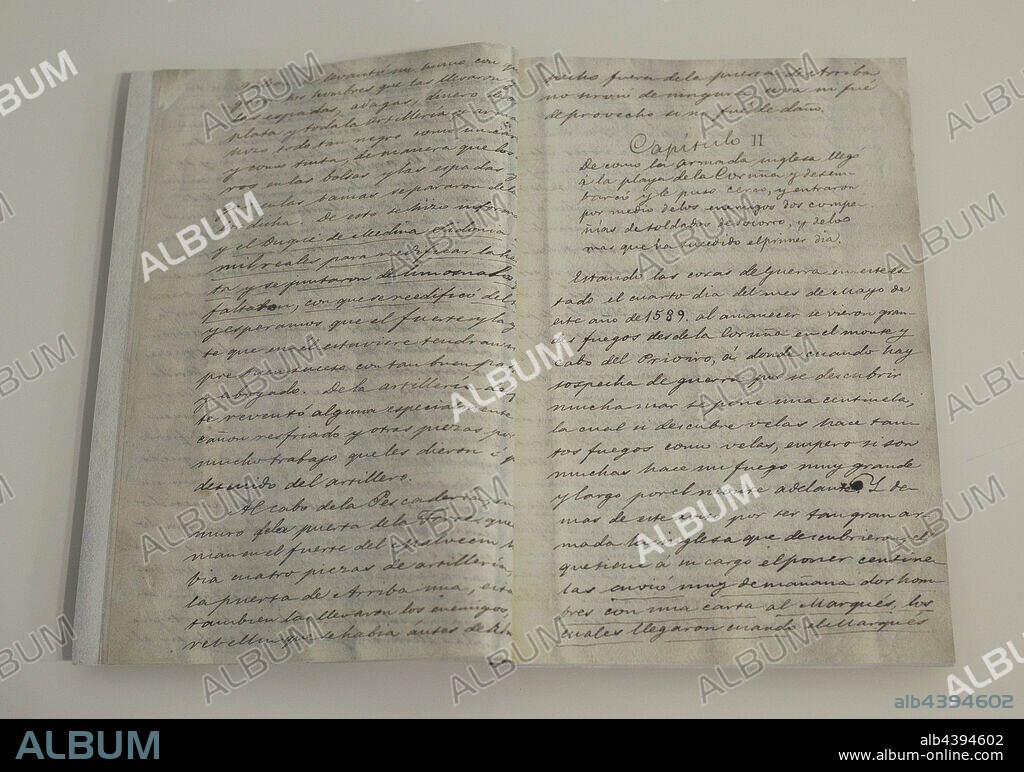 levantó un humo con
los hombres que las llevaron
las espadas, dagas, dinero de
plata y toda la artillería y arma
hizo todo tan negro como un car
y como tinta, de manera que los
en las bolsas y las espadas y
De esto se hizo inform
y el Duque de Medina Sidonia
mil reales para
ta y se juntaron de limosna
faltaban, con que se reedificó
y esperamos que el fuerte y la g
te que en él estuviere tendran
pre buen suceso con tan buen
y abogado. De la artillería
te reventó alguna especialmente
cañon resfriado y otras piezas por
mucho trabajo que les dieron ó p
descuido del artillero.
Al cabo de la Pescadería,
muro de la puerta de la Torre que
nian en el fuerte del Malvecin
bia cuatro piezas de artillería,
la puerta de Arriba una, esta
tambien la llevaron los enemigos,
rebellin que habia ántes
hecho fuera de la puerta de Arriba
no sirvió de ninguna cosa ni fué
de provecho si no fué de daño.
Capítulo II
De como la armada inglesa llegó
á la playa de la Coruña y desem
barcó y le puso cerco, y entraron
por medio de los enemigos dos compa
nias de soldados de socorro, y de lo
mas que ha sucedido el primer dia.
Estando las cosas de guerra en este es
tado el cuarto dia del mes de Mayo de
este año de 1589, al amanecer se vieron gran
des fuegos desde la Coruña en el monte y
cabo del Prioiro, a donde cuando hay
sospecha de guerra por se descubrir
mucha mar se pone una centinela,
la cual si descubre velas hace tan
tos fuegos como velas, empero si son
muchas hace un fuego muy grande
y largo por el monte adelante. Y de
mas de este por ser tan gran ar
mada la inglesa que descubriera, el
que tiene á su cargo el poner centine
las envió muy de mañana dos hom
bres con una carta al Marqués, los
cuales llegaron cuando el Marqués
ALBUM
alb4394602
ALBUM
alb4394602
www.album-online.com